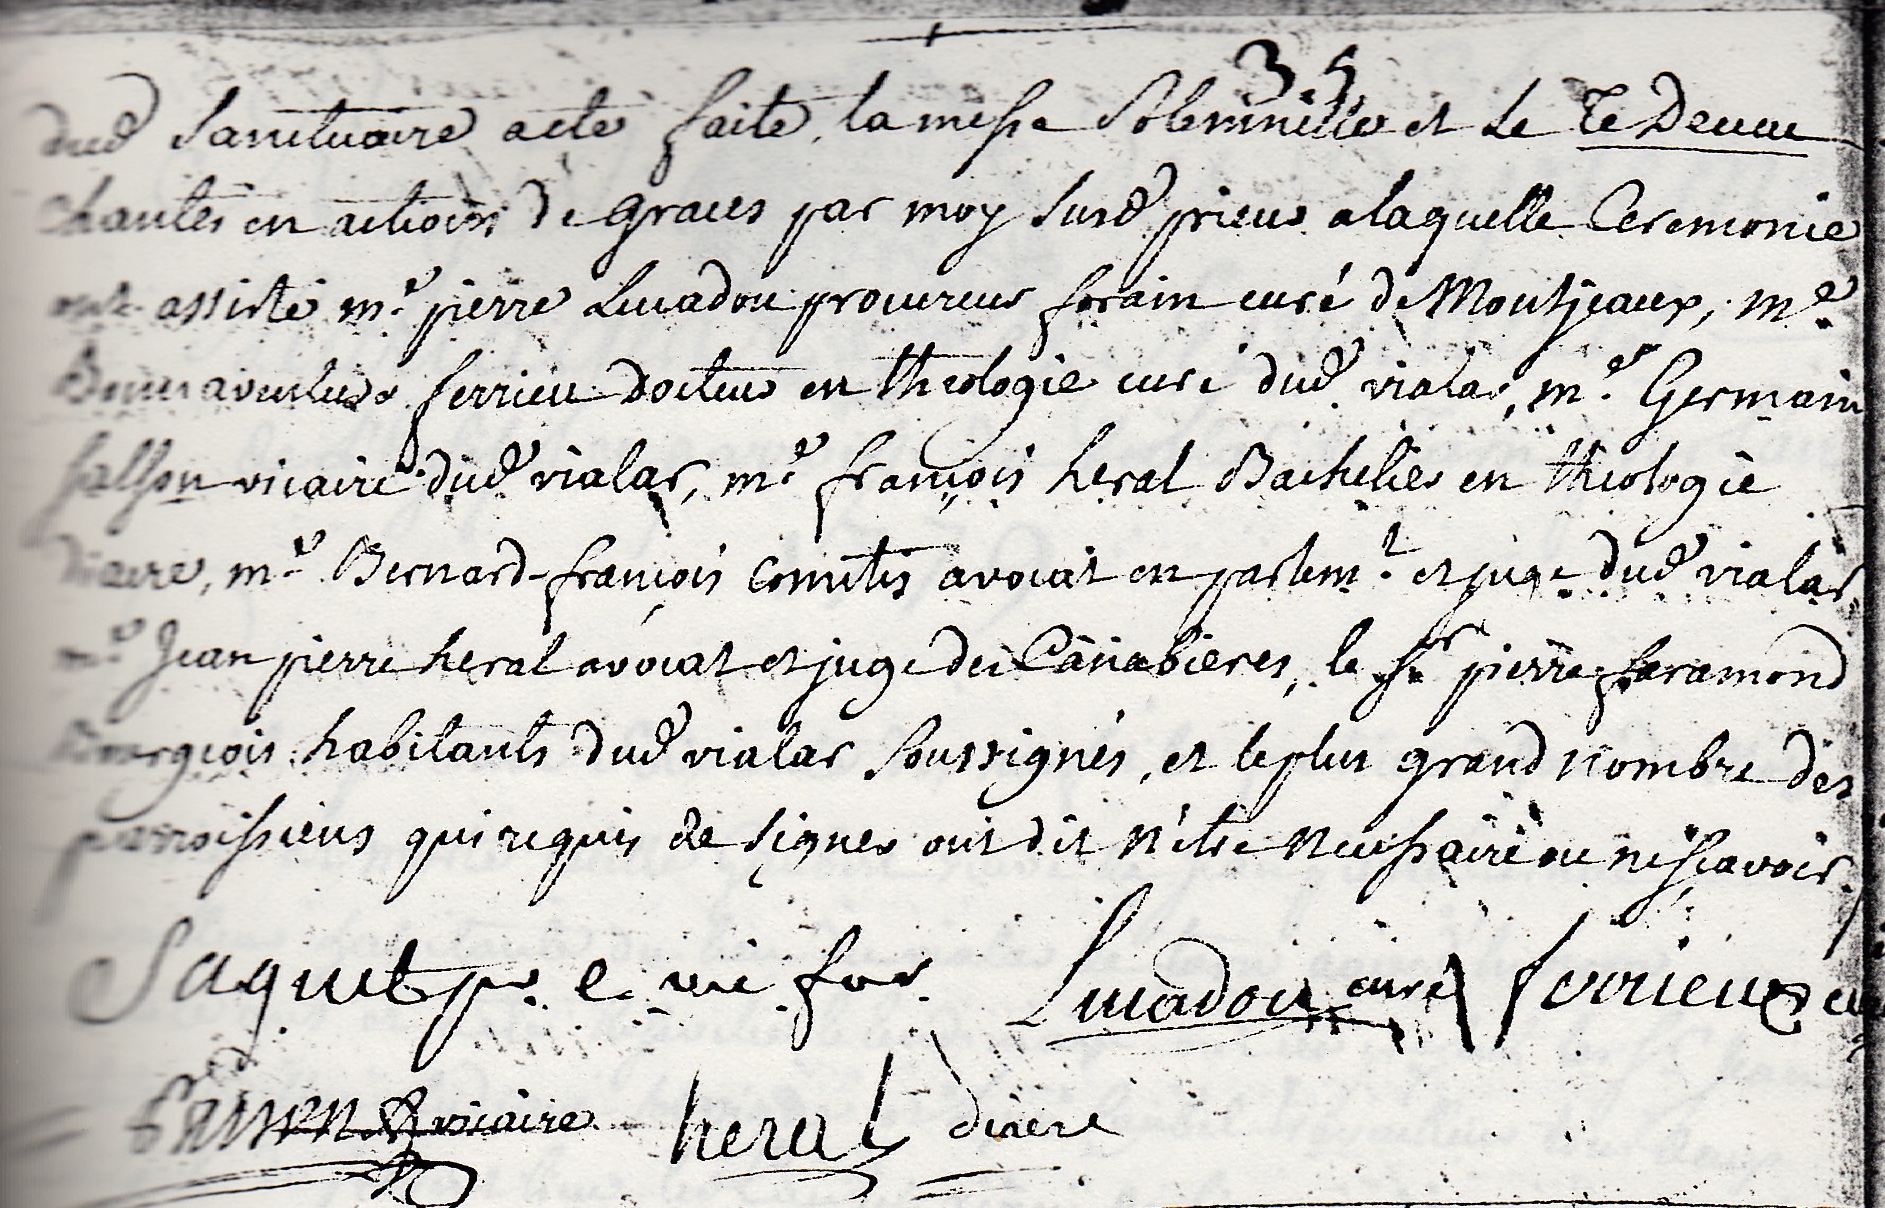 35
dud Sanctuaire a eté faite, la messe Solemnelle et Le Te Deum
chantés en actions de graces par moy Susd prieur a laquelle Ceremonie
ont assisté m.e pierre Lucadou procureur forain curé de Montjeaux, m.e
Bonnaventure ferrieu docteur en theologie curé dud vialar, m.e Germain
salson vicaire dud vialar, m.e françois heral Bachelier en theologie
diacre, m.e Bernard françois comitis avocat en parlem.t et juge dud vialar
m.e Jean pierre heral avocat et juge des Canabieres, le Sr pierre faramond
Bourgeois habitants dud vialar Soussignés, et le plus grand nombre des
parroissiens qui requis de signer ont dit n'etre necessaire ou ne sçavoir.
Saquet pr. e vic for Lucadou curé ferrieu
vicaire heral diacre